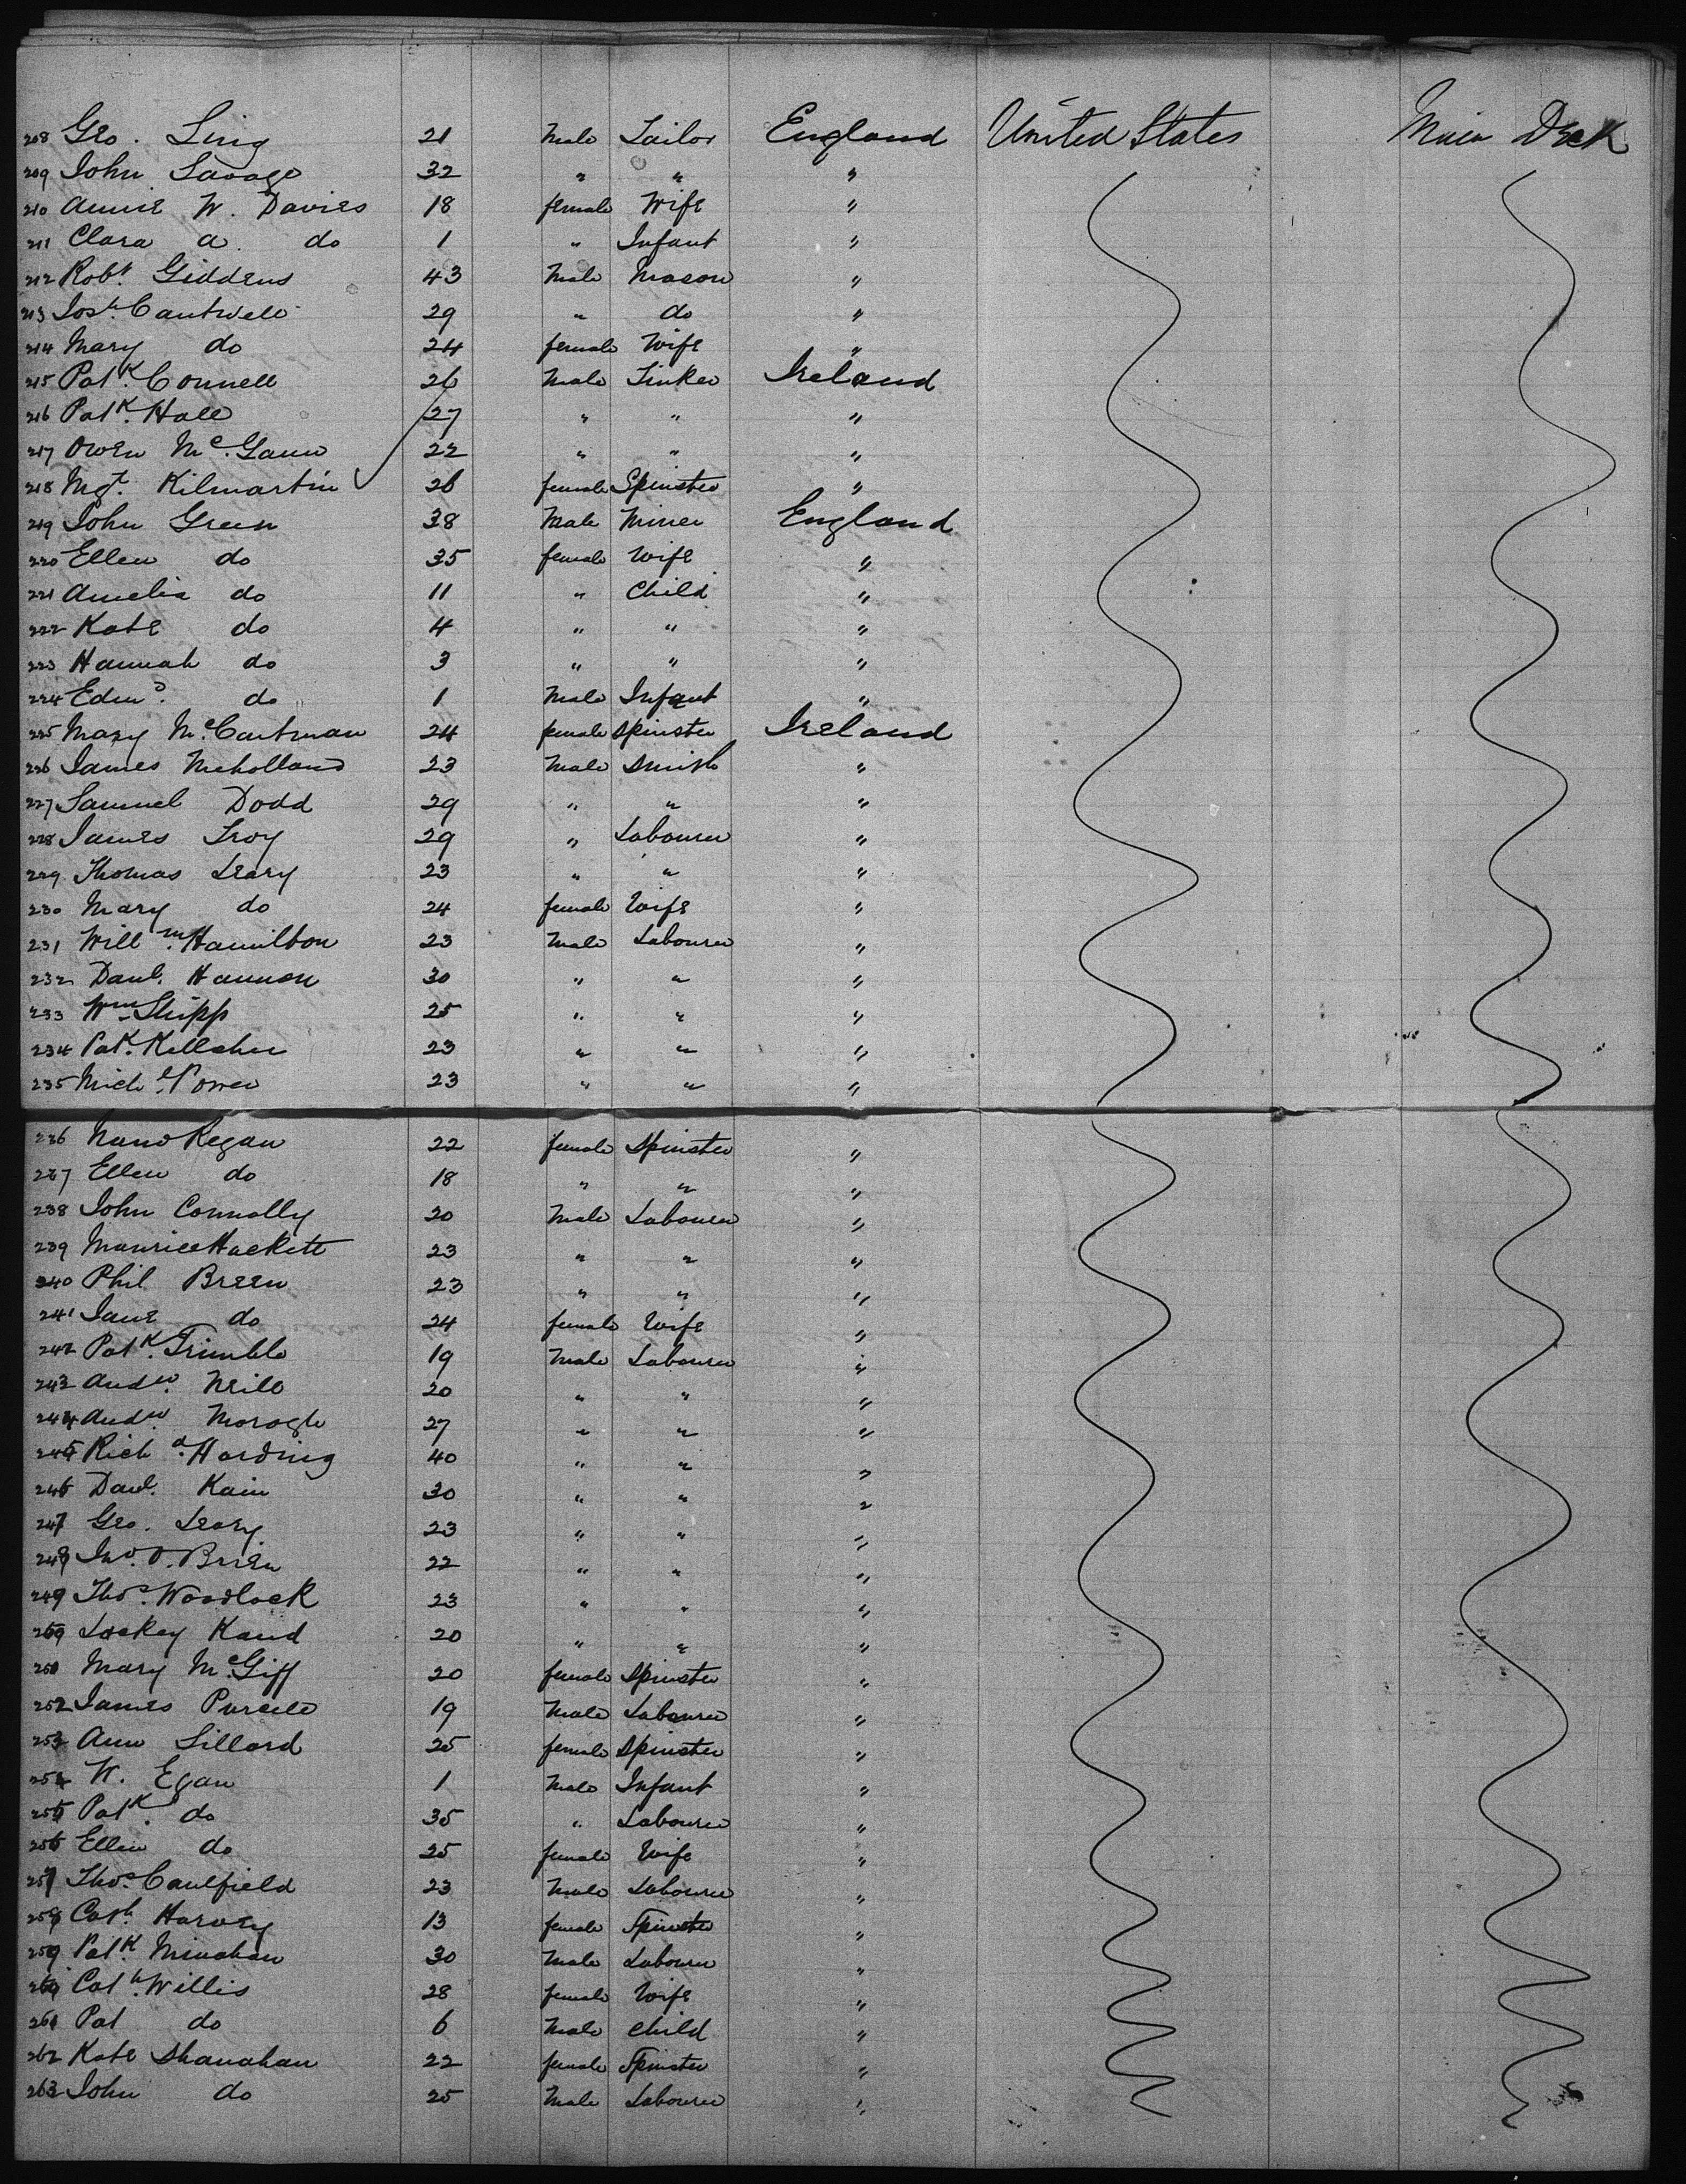 208 Geo. Ling 21 Male Tailor England United States Main Deck
209 John Savage 32 " " "
210 Annie W. Davies 18 female Wife "
211 Clara A. do 1 " Infant "
212 Robt. Giddens 43 Male Mason "
213 Josh. Cantwell 29 " do "
214 Mary do 24 female Wife "
215 Patk. Connell 26 Male Tinker Ireland
216 Patk. Hall 27 " " "
217 Owen Mc.Gann 22 " " "
218 Mgt. Kilmartin 26 female Spinster "
219 John Green 38 Male Miner England
220 Ellen do 35 female Wife "
221 Amelia do 11 " Child "
222 Kate do 4 " " "
223 Hannah do 3 " " "
224 Edmd. do 1 Male Infant "
225 Mary Mc. 24 female Spinster Ireland
226 James Mcholland 23 Male Smith "
227 Samuel Dodd 29 " " "
228 James Troy 29 " Labourer "
229 Thomas Leary 23 " " "
230 Mary do 24 female Wife "
231 Willm. Hamilton 23 Male Labourer "
232 Danl. Hannon 30 " " "
233 Wm. Shipp 25 " " "
234 Patk. Kelleher 23 " " "
235 Michl. Power 23 " " "
236 Nano Regan 22 female Spinster "
237 Ellen do 18 " " "
238 John Connolly 20 Male Labourer "
239 Maurice Hackett 23 " " "
240 Phil Breen 23 " " "
241 Jane do 24 female Wife "
242 Patk. Trimble 19 Male Labourer "
243 Andw. Neill 20 " " "
244 Andw. Morogh 27 " " "
245 Richd. Harding 40 " " "
246 Danl. Kain 30 " " "
247 Geo. Leary 23 " " "
248 Jno. O.Brien 22 " " "
249 Thos. Woodlock 23 " " "
250 Lackey Kand 20 " " "
251 Mary Mc.Giff 20 female Spinster "
252 James Purcell 19 Male Labourer "
253 Ann Lillard 25 female Spinster "
254 W. Egan 1 Male Infant "
255 Patk. do 35 " Labourer "
256 Ellen do 25 female Wife "
257 Thos. Caulfield 23 Male Labourer "
258 Cath. Harvey 13 female Spinster "
259 Patk. Minahan 30 Male Labourer "
260 Cath. Willis 28 female Wife "
261 Pat do 6 Male Child "
262 Kate Shanahan 22 female Spinster "
263 John do 25 Male Labourer "